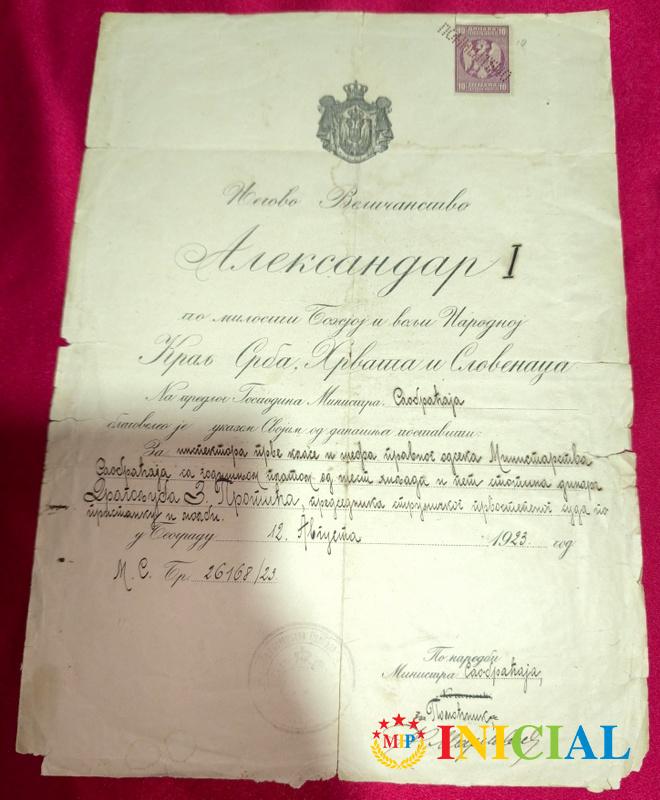 10 ДИНАРА 10
10 ДИНАРА 10
Његово Величанство
Александар I
по милости Божјој и вољи Народној
Краљ Срба, Хрвата и Словенаца
На предлог Господина Министра Саобраћаја
благоволео је указом Својим од данашњег поставити:
За инспектора прве класе и шефа правног одсека Министарства
Саобраћаја са годишњом платом од шест хиљада и пет стотина динара
Драгољуба З. Протића, председника струдничког првостепеног суда по
пристанку и молби.
у Београду 12. Августа 1923 год
М. С. Бр. 26168/23.
По наредби
Министра Саобраћаја,
Помоћник
MIP INICIAL